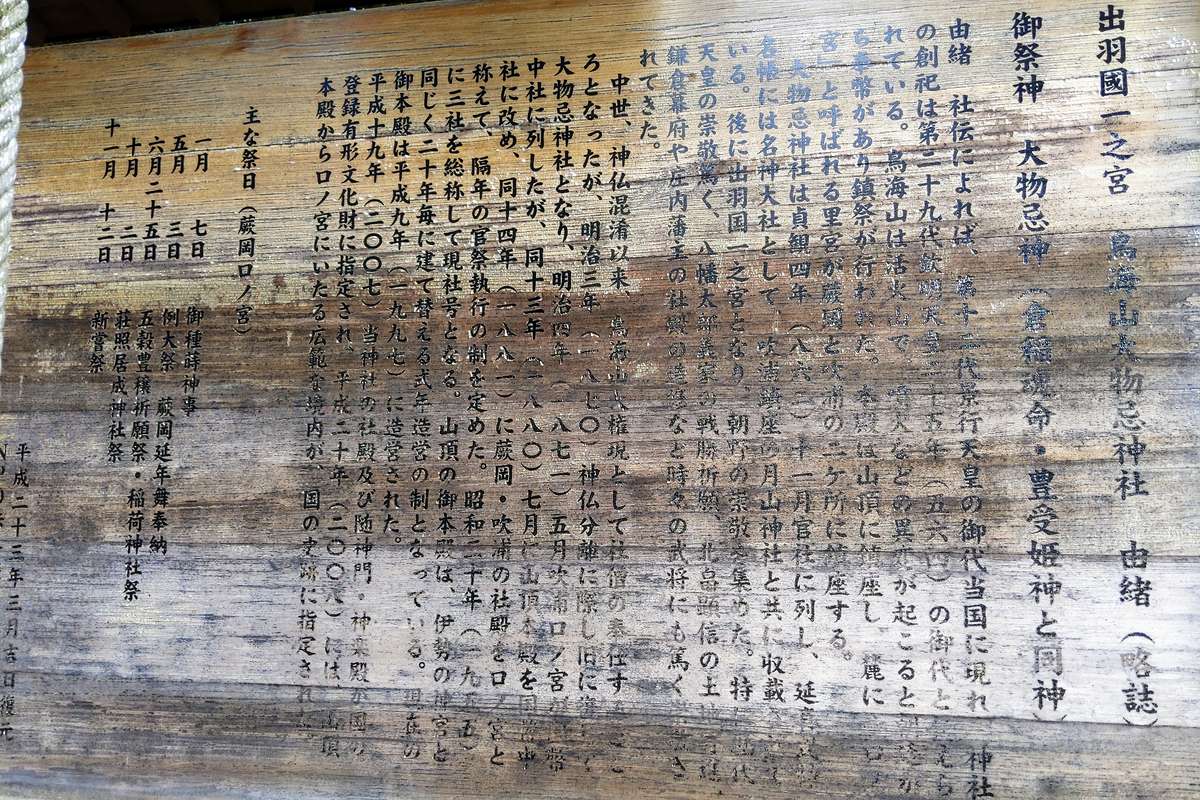 出羽國一之宮 鳥海山大物忌神社 由緒(略誌)
御祭神 大物忌神(倉稲魂命・豊受姫神と同神)
由緒 社伝によれば、第十二代景行天皇の御代当国に現れ 神社
の創祀は第二十九代欽明天皇二十五年(五六四)の御代と
れている。鳥海山は活火山で、噴火などの異変が起こると
ら奉幣があり鎮祭が行われた。本殿は山頂に鎮座し、麓に
宮」と呼ばれる里宮が蕨岡と吹浦の二ケ所に鎮座する。
大物忌神社は貞観四年(八六二)十一月官社に列し、延喜式
名帳には名神大社として、吹浦鎮座の月山神社と共に収載
いる。後に出羽国一之宮となり、朝野の崇敬を集めた。特に 代
天皇の崇敬篤く、八幡太郎義家の戦勝祈願、北畠顕信の土
鎌倉幕府や庄内藩主の社殿の造修など時々の武将にも篤く
れてきた。
中世、神仏混淆以来、鳥海山大権現として社僧の奉仕する
ろとなったが、明治三年(一八七〇)神仏分離に際し旧に
大物忌神社となり、明治四年(一八七一)五月吹浦口ノ宮が 幣
中社に列したが、同十三年(一八八〇)七月に山頂本殿を国幣中
社に改め、同十四年(一八八一)に蕨岡・吹浦の社殿を口ノ宮と
称えて、隔年の官祭執行の制を定めた。昭和三十年(一九五五)
に三社を総称して現社号となる。山頂の御本殿は、伊勢の神宮と
同じく二十年毎に建て替える式年造営の制となっている。現在の
御本殿は平成九年(一九九七)に造営された。
平成十九年(二〇〇七)当神社の社殿及び随神門・神楽殿が国の
登録有形文化財に指定され、平成二十年(二〇〇八)には、山頂
本殿から口ノ宮にいたる広範な境内が、国の史跡に指定された。
主な祭日(蕨岡口ノ宮)
一月 七日 御種蒔神事
五月 三日 例大祭 蕨岡延年舞奉納
六月二十五日 五穀豊穣祈願祭・稲荷神社祭
十月 二日 荘照居成神社祭
十一月 十二日 新嘗祭
平成二十三年三月吉日復元